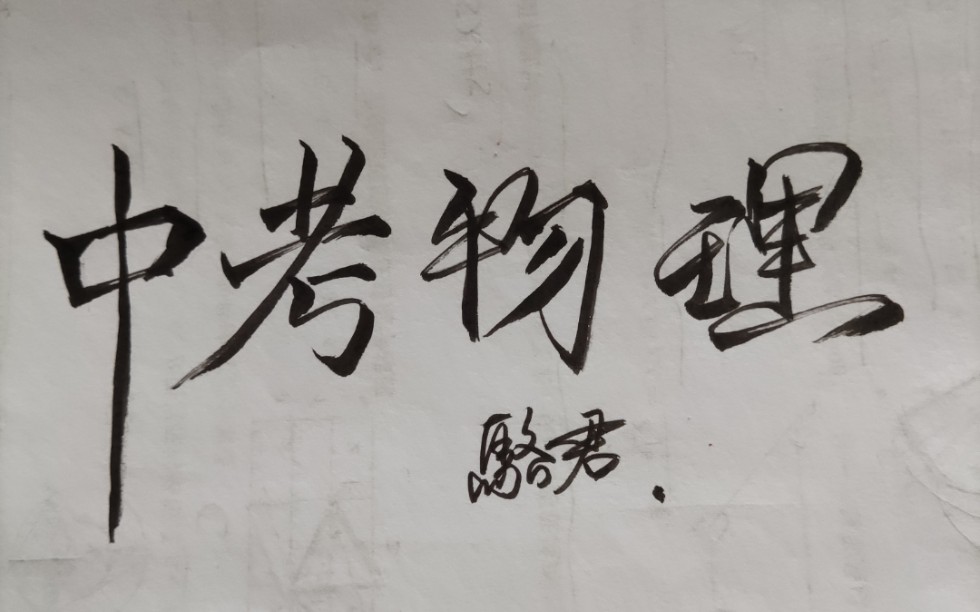 中考物理
駱君.